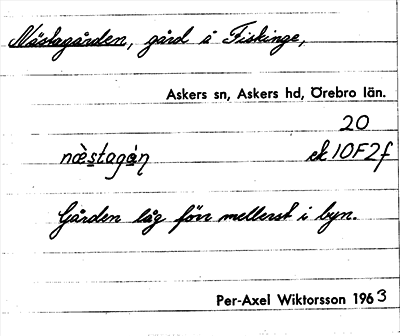 Nästagården, gård å Fiskinge,
Askers sn, Askers hd, Örebro län.
20
næ̀stagán̥ ek 10F2f
Gården låg förr mellerst i byn.
Per-Axel Wiktorsson 1963